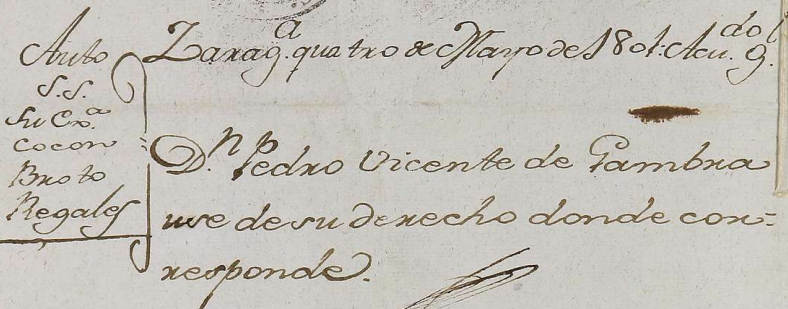 Auto
S.S.
Su Exª.
Cocon
Broto
Regales
Zaragª. quatro de Mayo de 1801. Acudo. Gl.
Dn. Pedro Vicente de Gambra
use de su derecho donde cor=
responde.